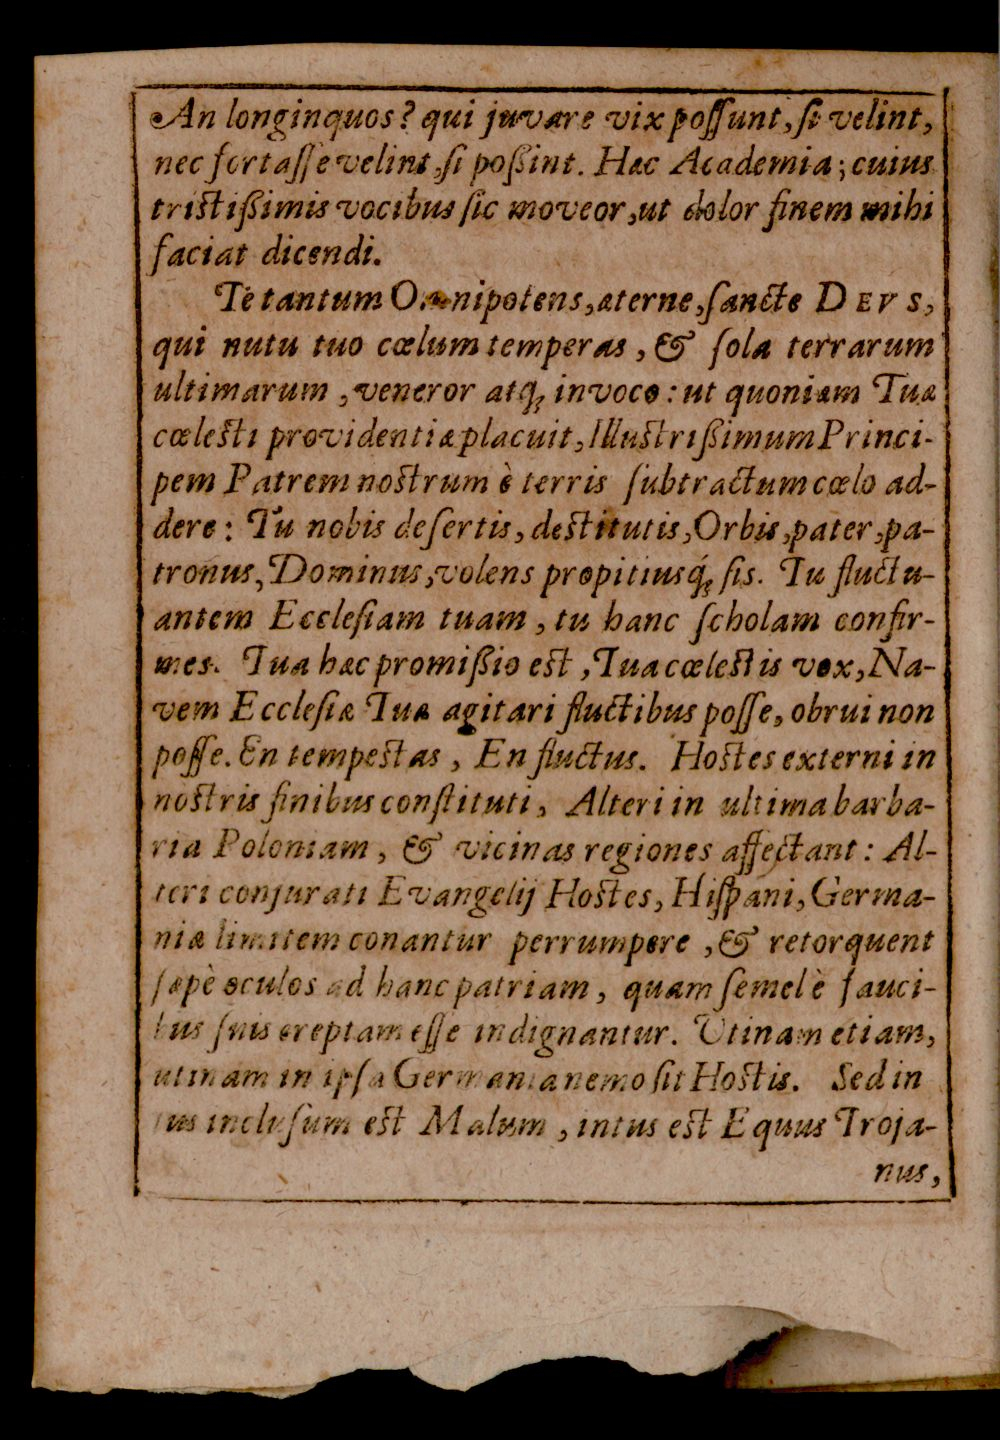 An longinquos? qui juvare vix poſſunt, ſi velint,
nec fortaſſè velint, ſi poßint. Hæc Academia; cuius
triſtißimis vocibus ſic moveor, ut dolor finem mihi
faciat dicendi.
Te tantum Omnipotens, æterne, ſancte DEVS,
qui nutu tuo cœlum temperas, & ſola terrarum
ultimarum, veneror atq; invoco: ut quoniam Tuæ
cœleſti providentiæ placuit, Illuſtrißimum Princi-
pem Patrem noſtrum è terris ſubtractum cœlo ad-
dere: Tu nobis deſertis, deſtitutis, Orbis, pater, pa-
tronus, Dominus, volens propitiusq́; ſis. Tu fluctu-
antem Eccleſiam tuam, tu hanc ſcholam confir-
mes. Tua hæc promißio eſt, Tua cœleſtis vox, Na-
vem Eccleſiæ Tuæ agitari fluctibus poſſe, obrui non
poſſe. En tempeſtas, En fluctus. Hoſtes externi in
noſtris finibus conſtituti, Alteri in ultima barba-
ria Poloniam, & vicinas regiones affectant: Al-
teri conjurati Evangelij Hoſtes, Hiſpani, Germa-
niæ limitem conantur perrumpere, & retorquent
ſæpè oculos ad hanc patriam, quam ſemel è fauci-
bus ſuis ereptam eſſe indignantur. Vtinam etiam,
utinam in ipſa Germania nemo ſit Hoſtis. Sed in
tus incluſum eſt Malum, intus eſt Equus Troja-
nus,